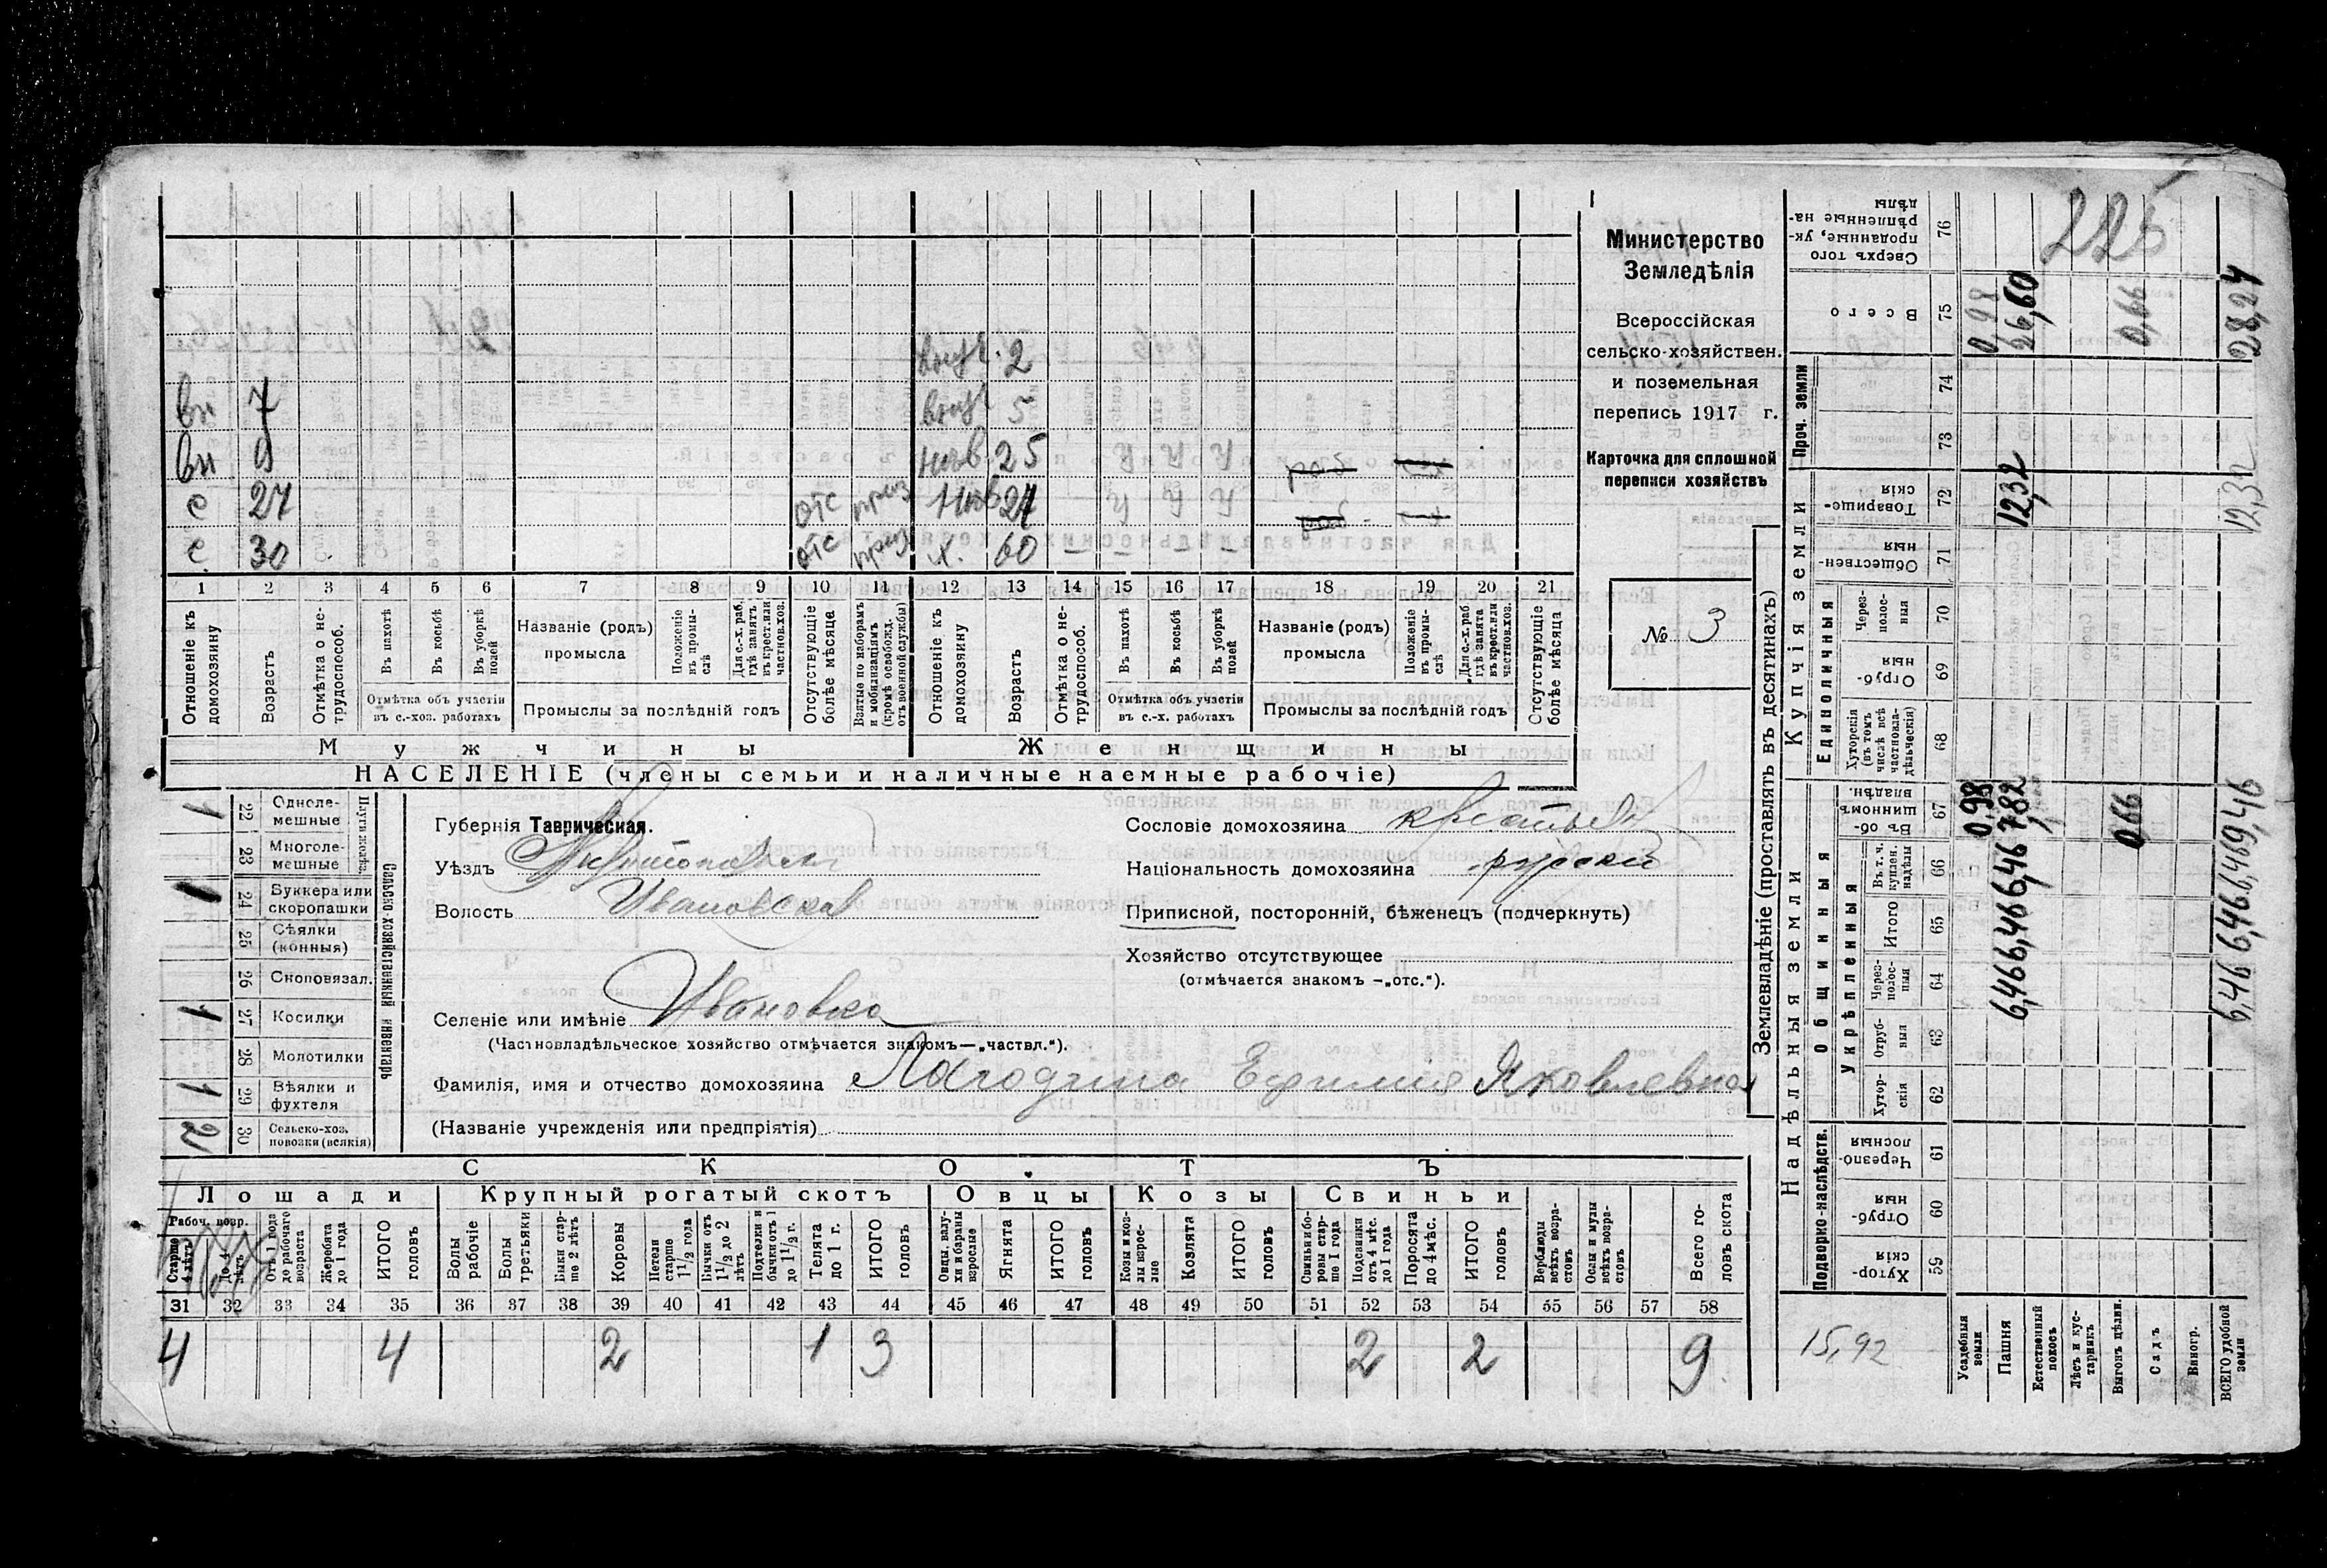 Министерство
Земледѣлія
Всероссійская
сельско-хозяйствен.
и поземельная
перепись 1917 г.
Карточка для сплошной
переписи хозяйствъ
№ 3
внуч. 2
вн 7 внуч 5
вн 9 нев. 25 У У У раб
с 27 отс приз нев 27 У У У раб
с 30 отс приз х. 60 — — — —
1 2 3 4 5 6 7 8 9 10 11 12 13 14 15 16 17 18 19 20 21
Отношеніе къ домохозяину
Возрастъ
Отмѣтка о не-трудоспособ.
Въ пахотѣ
Въ косьбѣ
Въ уборкѣ полей
Отмѣтка объ участіи въ с.-хоз. работахъ
Названіе (родъ) промысла
Положеніе въ промы-слѣ
Для с.-х. раб. гдѣ занятъ въ крест. или частнов. хоз.
Промыслы за послѣдній годъ
Отсутствующіе болѣе мѣсяца
Взятые по наборамъ и мобилизаціямъ (кромѣ освобожд. отъ военной службы)
Отношеніе къ домохозяину
Возрастъ
Отмѣтка о не-трудоспособ.
Въ пахотѣ
Въ косьбѣ
Въ уборкѣ полей
Отмѣтка объ участіи въ с.-х. работахъ
Названіе (родъ) промысла
Положеніе въ промы-слѣ
Для с.-х. раб. гдѣ занята въ крест. или частнов. хоз.
Промыслы за послѣдній годъ
Отсутствующіе болѣе мѣсяца
Мужчины Женщины
НАСЕЛЕНІЕ (члены семьи и наличные наемные рабочіе)
Сельско-хозяйственный инвентарь
1 22 Одноле-мешные
23 Многоле-мешные
1 24 Буккера или скоропашки
25 Сѣялки (конныя)
26 Сноповязал.
1 27 Косилки
28 Молотилки
1 29 Вѣялки и фухтеля
2 30 Сельско-хоз. повозки (всякія)
Губернія Таврическая.
Уѣздъ
Волость Ивановская
Селеніе или имѣніе Ивановка
(Частновладѣльческое хозяйство отмѣчается знакомъ—„частвл.“).
Фамилія, имя и отчество домохозяина Яковлевна
(Названіе учрежденія или предпріятія)
Сословіе домохозяина
Національность домохозяина русский
Приписной, посторонній, бѣженецъ (подчеркнуть)
Хозяйство отсутствующее
(отмѣчается знакомъ —„отс.“).
СКОТЪ
Лошади Крупный рогатый скотъ Овцы Козы Свиньи
Рабоч. возр.
Старше 4 лѣтъ
До 4 лѣтъ
Отъ 1 года до рабочаго возраста
Жеребята до 1 года
ИТОГО головъ
Волы рабочіе
Волы третьяки
Быки стар-ше 2 лѣтъ
Коровы
Нетели старше 1 1/2 года
Бычки отъ 1 1/2 до 2 лѣтъ
Подтелки и бычки отъ 1 до 1 1/2 г.
Телята до 1 г.
ИТОГО головъ
Овцы, валу-хи и бараны взрослые
Ягнята
ИТОГО головъ
Козы и коз-лы взрос-лые
Козлята
ИТОГО головъ
Свиньи и бо-ровы стар-ше 1 года
Подсвинки отъ 4 мѣс. до 1 года
Поросята до 4 мѣс.
ИТОГО головъ
Верблюды всѣхъ возра-стовъ
Ослы и мулы всѣхъ возра-стовъ
Всего го-ловъ скота
31 32 33 34 35 36 37 38 39 40 41 42 43 44 45 46 47 48 49 50 51 52 53 54 55 56 57 58
4 4 2 1 3 2 2 9
Землевладѣніе (проставлять въ десятинахъ)
Надѣльныя земли Купчія земли Проч. земли
Подворно-наслѣдств. Общинныя Единоличныя
Укрѣпленныя
Хутор-скія 59
Отруб-ныя 60
Черезпо-лосныя 61
Хутор-скія 62
Отруб-ныя 63
Через-полос-ныя 64
Итого 65
Въ т. ч. куплен. надѣлы 66
Въ об-щинномъ владѣн. 67
Хуторскія (въ томъ числѣ всѣ частновла-дѣльческія) 68
Отруб-ныя 69
Через-полос-ныя 70
Обществен-ныя 71
Товарище-скія 72
73
74
Всего 75
Сверхъ того проданные, ук-рѣпленные на-дѣлы 76
Усадебныя земли 0,98 0,98
Пашня 6,46 6,46 6,46 7,82 12,32 26,60
Естественный покосъ
Лѣсъ и кус-тарникъ
Выгонъ цѣлин. 0,66 0,66
Садъ
Виногр.
ВСЕГО удобной земли 6,46 6,46 6,46 9,46 12,32 28,24
15,92
225